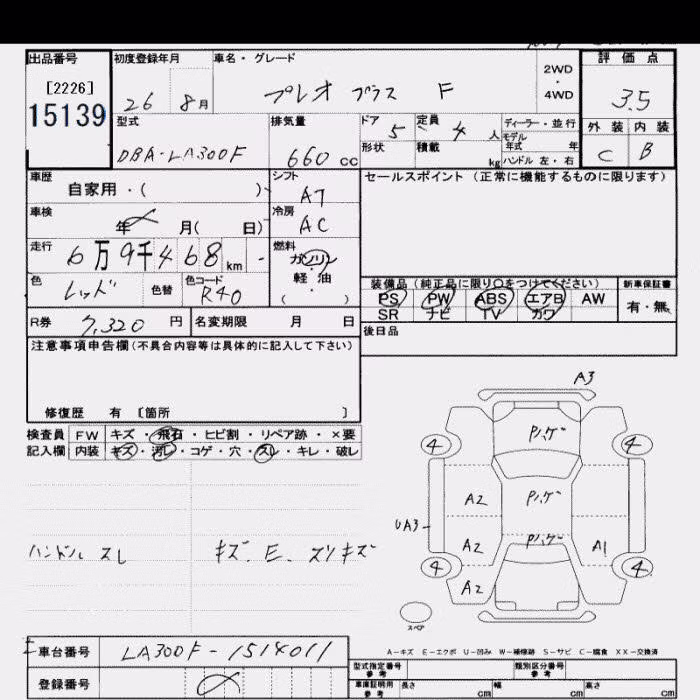 出品番号 初度登録年月 車名・グレード 2WD・4WD 評価点
[2226]
15139 26 8月 プレオ プラス F 3.5
型式 排気量 ドア 5 定員 4人 ディーラー・並行 外装 内装
モデル年式 年
DBA-LA300F 660cc 形状 積載 kg ハンドル 左・右 C B
車歴 シフト セールスポイント(正常に機能するものに限ります)
自家用・( ) AT
車検 冷房
年 月( 日) AC
走行 6万9千468km 燃料
ガソリン
軽・油
( ・ )
色 色替 色コード 装備品(純正品に限り○をつけてください) 新車保証書
レッド R40 PS PW ABS エアB AW 有・無
SR ナビ TV カワ
R券 7,320円 名変期限 月 日 後日品
注意事項申告欄(不具合内容等は具体的に記入して下さい)
修復歴 有 [箇所 ]
検査員 FW キズ・飛石・ヒビ割・リペア跡・×要
記入欄 内装 キズ・汚レ・コゲ・穴・スレ・キレ・破レ
A3
4 4
A2
UA3
A2 A1
4 4
A2
ハンドル スレ キズ、E、スリキズ
スペア
A-キズ E-エクボ U-凹み W-補修跡 S-サビ C-腐食 XX-交換済
車台番号 LA300F-1514011
型式指定番号 参考 類別区分番号 参考
登録番号
車庫証明用 参考 長さ cm 幅 cm 高さ cm